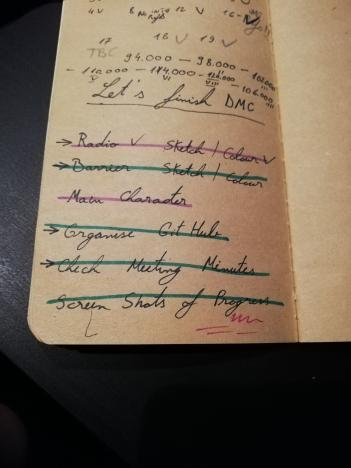 4 V 8 12 V 16 - V
17 18 V 19 V
TBC
94.000 - 98.000 - 102.000
- 110.000 - 114.000 - - 106.000
V VI VII
Let's finish DMC
→ Radio V Sketch / Colour V
→ Barrier Sketch / Colour
Main Character
→ Organise Git Hub
→ Check Meeting Minutes
Screen Shots of Progress